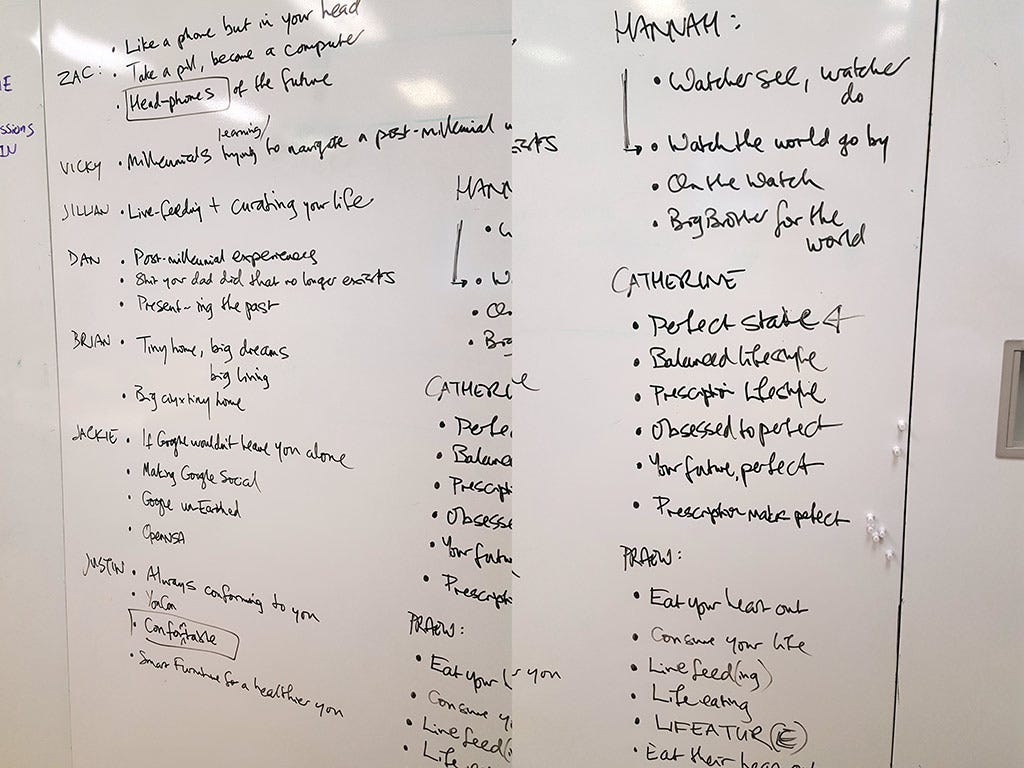 E
ssions
IN
• Like a phone but in your head
ZAC: • Take a pill, become a computer
• Head-phones of the future
learning/
VICKY • Millennials trying to navigate a post-millennial
JILLIAN • Live-feeding + curating your life
DAN • Post-millennial experiences
• Shit your dad did that no longer exists
• Present-ing the past
BRIAN • Tiny home, big dreams
big living
• Big city x tiny home
JACKIE • If Google wouldn't leave you alone
• Making Google Social
• Google un-Earthed
• OpenNSA
JUSTIN • Always conforming to you
• YouCon
• Conformtable
• Smart Furniture for a healthier you
HANN
• W
• O
• Big
CATHERINE
• Perfe
• Balance
• Prescript
• Obsesse
• Your futur
• Prescript
PRAEW:
• Eat your l
• Consume y
• Line feed(
• Life
ists
you
HANNAH:
• Watcher see, watcher
do
• Watch the world go by
• On the Watch
• Big Brother for the
world
CATHERINE
• Perfect state
• Balanced lifestyle
• Prescription Lifestyle
• Obsessed to perfect
• Your future, perfect
• Prescription makes perfect
PRAEW:
• Eat your heart out
• Consume your life
• Line feed(ing)
• Life eating
• LIFEATUR(E)
• Eat their hear out